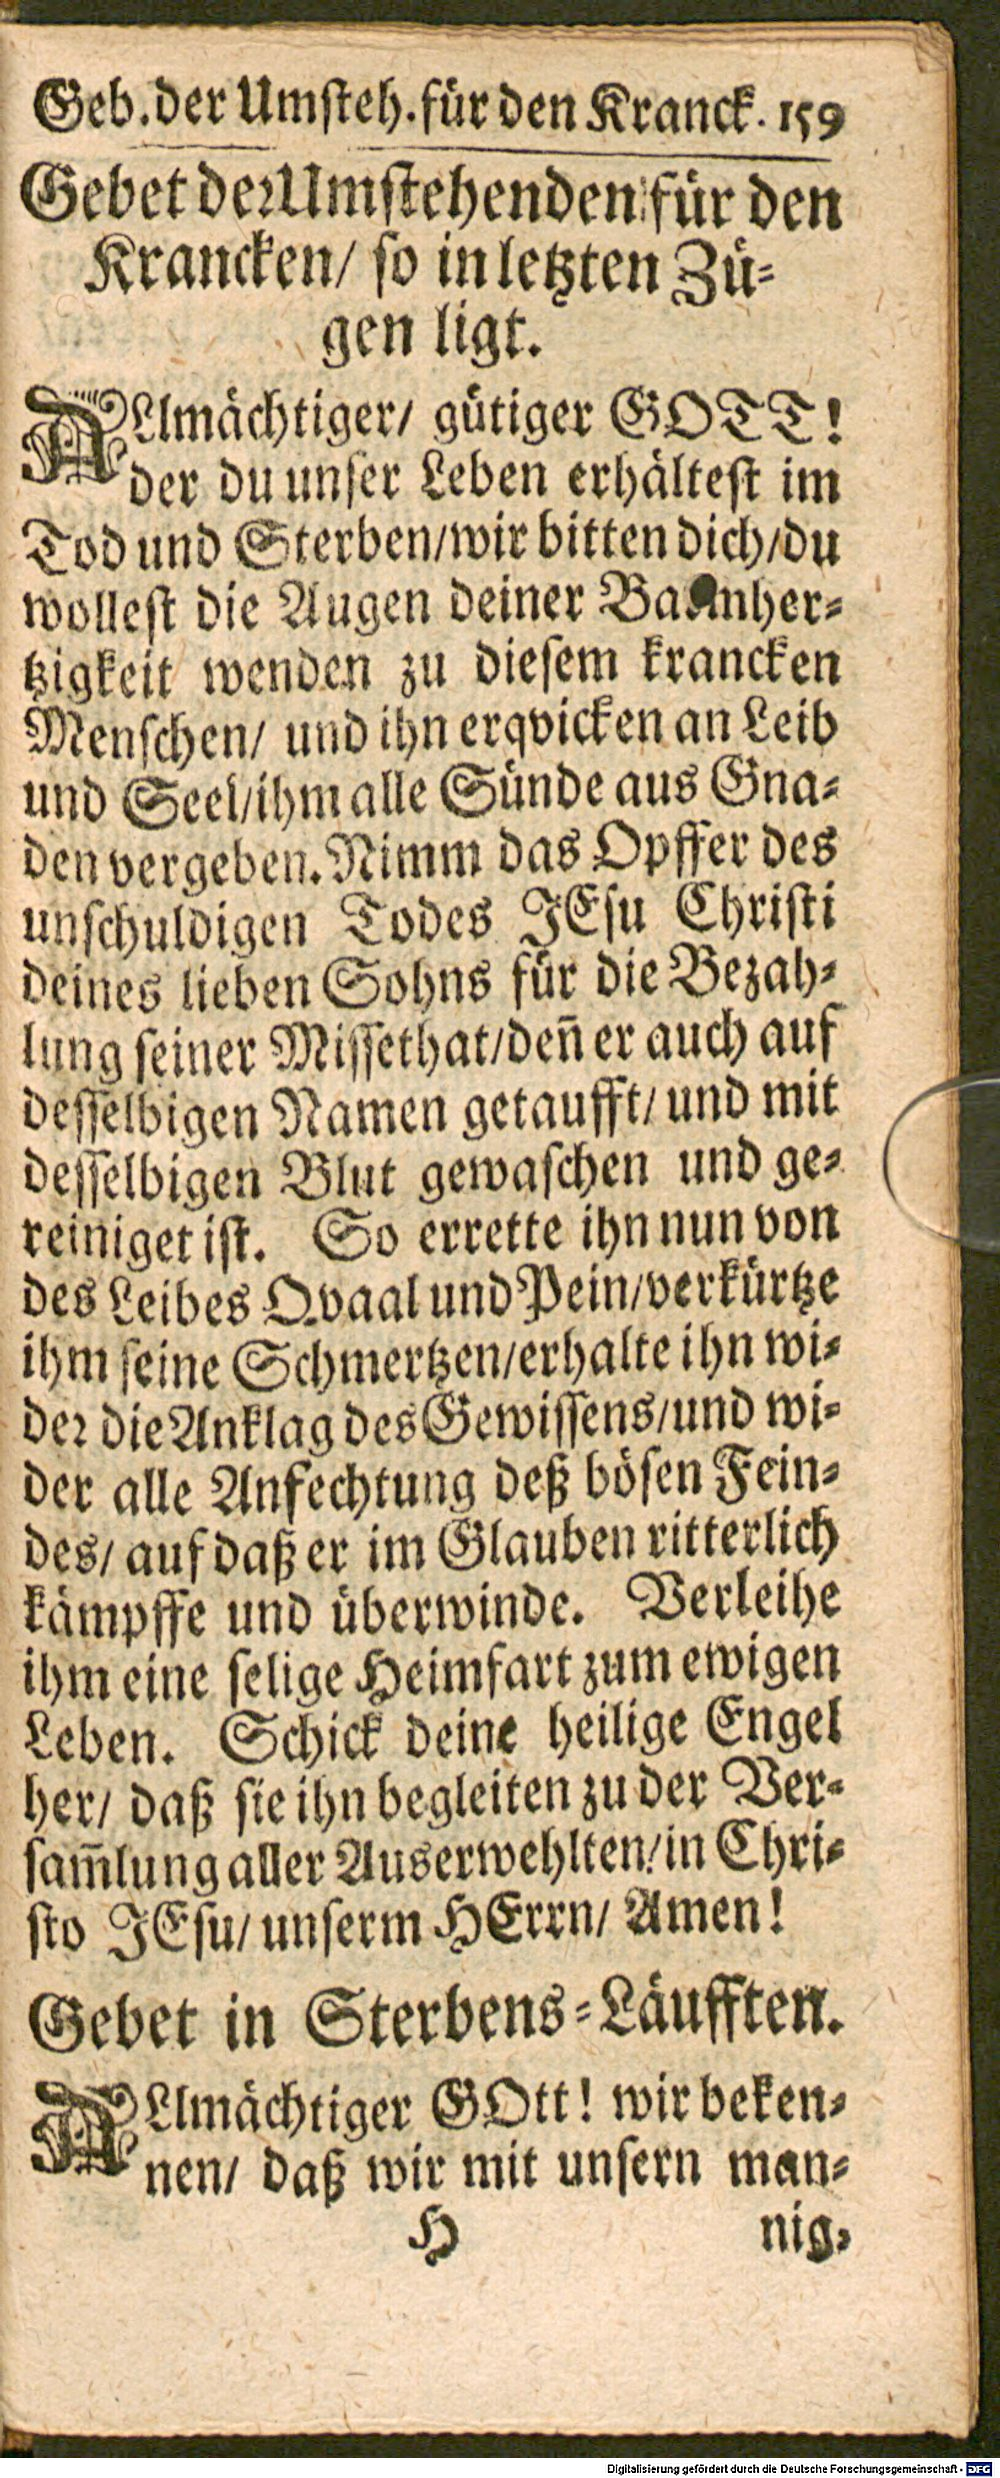 Geb. der Umsteh. für den Kranck. 159
Gebet der Umstehenden für den
Krancken/ so in letzten Zü-
gen ligt.
ALlmächtiger/ gütiger GOTT!
der du unser Leben erhältest im
Tod und Sterben/ wir bitten dich/ du
wollest die Augen deiner Barmher-
tzigkeit wenden zu diesem krancken
Menschen/ und ihn erqvicken an Leib
und Seel/ ihm alle Sünde aus Gna-
den vergeben. Nimm das Opffer des
unschuldigen Todes JEsu Christi
deines lieben Sohns für die Bezah-
lung seiner Missethat/ deñ er auch auf
desselbigen Namen getaufft/ und mit
desselbigen Blut gewaschen und ge-
reiniget ist. So errette ihn nun von
des Leibes Qvaal und Pein/ verkürtze
ihm seine Schmertzen/ erhalte ihn wi-
der die Anklag des Gewissens/ und wi-
der alle Anfechtung deß bösen Fein-
des/ auf daß er im Glauben ritterlich
kämpffe und überwinde. Verleihe
ihm eine selige Heimfart zum ewigen
Leben. Schick deine heilige Engel
her/ daß sie ihn begleiten zu der Ver-
sam̃lung aller Auserwehlten/ in Chri-
sto JEsu/ unserm HErrn/ Amen!
Gebet in Sterbens-Läufften.
ALlmächtiger GOtt! wir beken-
nen/ daß wir mit unsern man-
H nig-
Digitalisierung gefördert durch die Deutsche Forschungsgemeinschaft - DFG